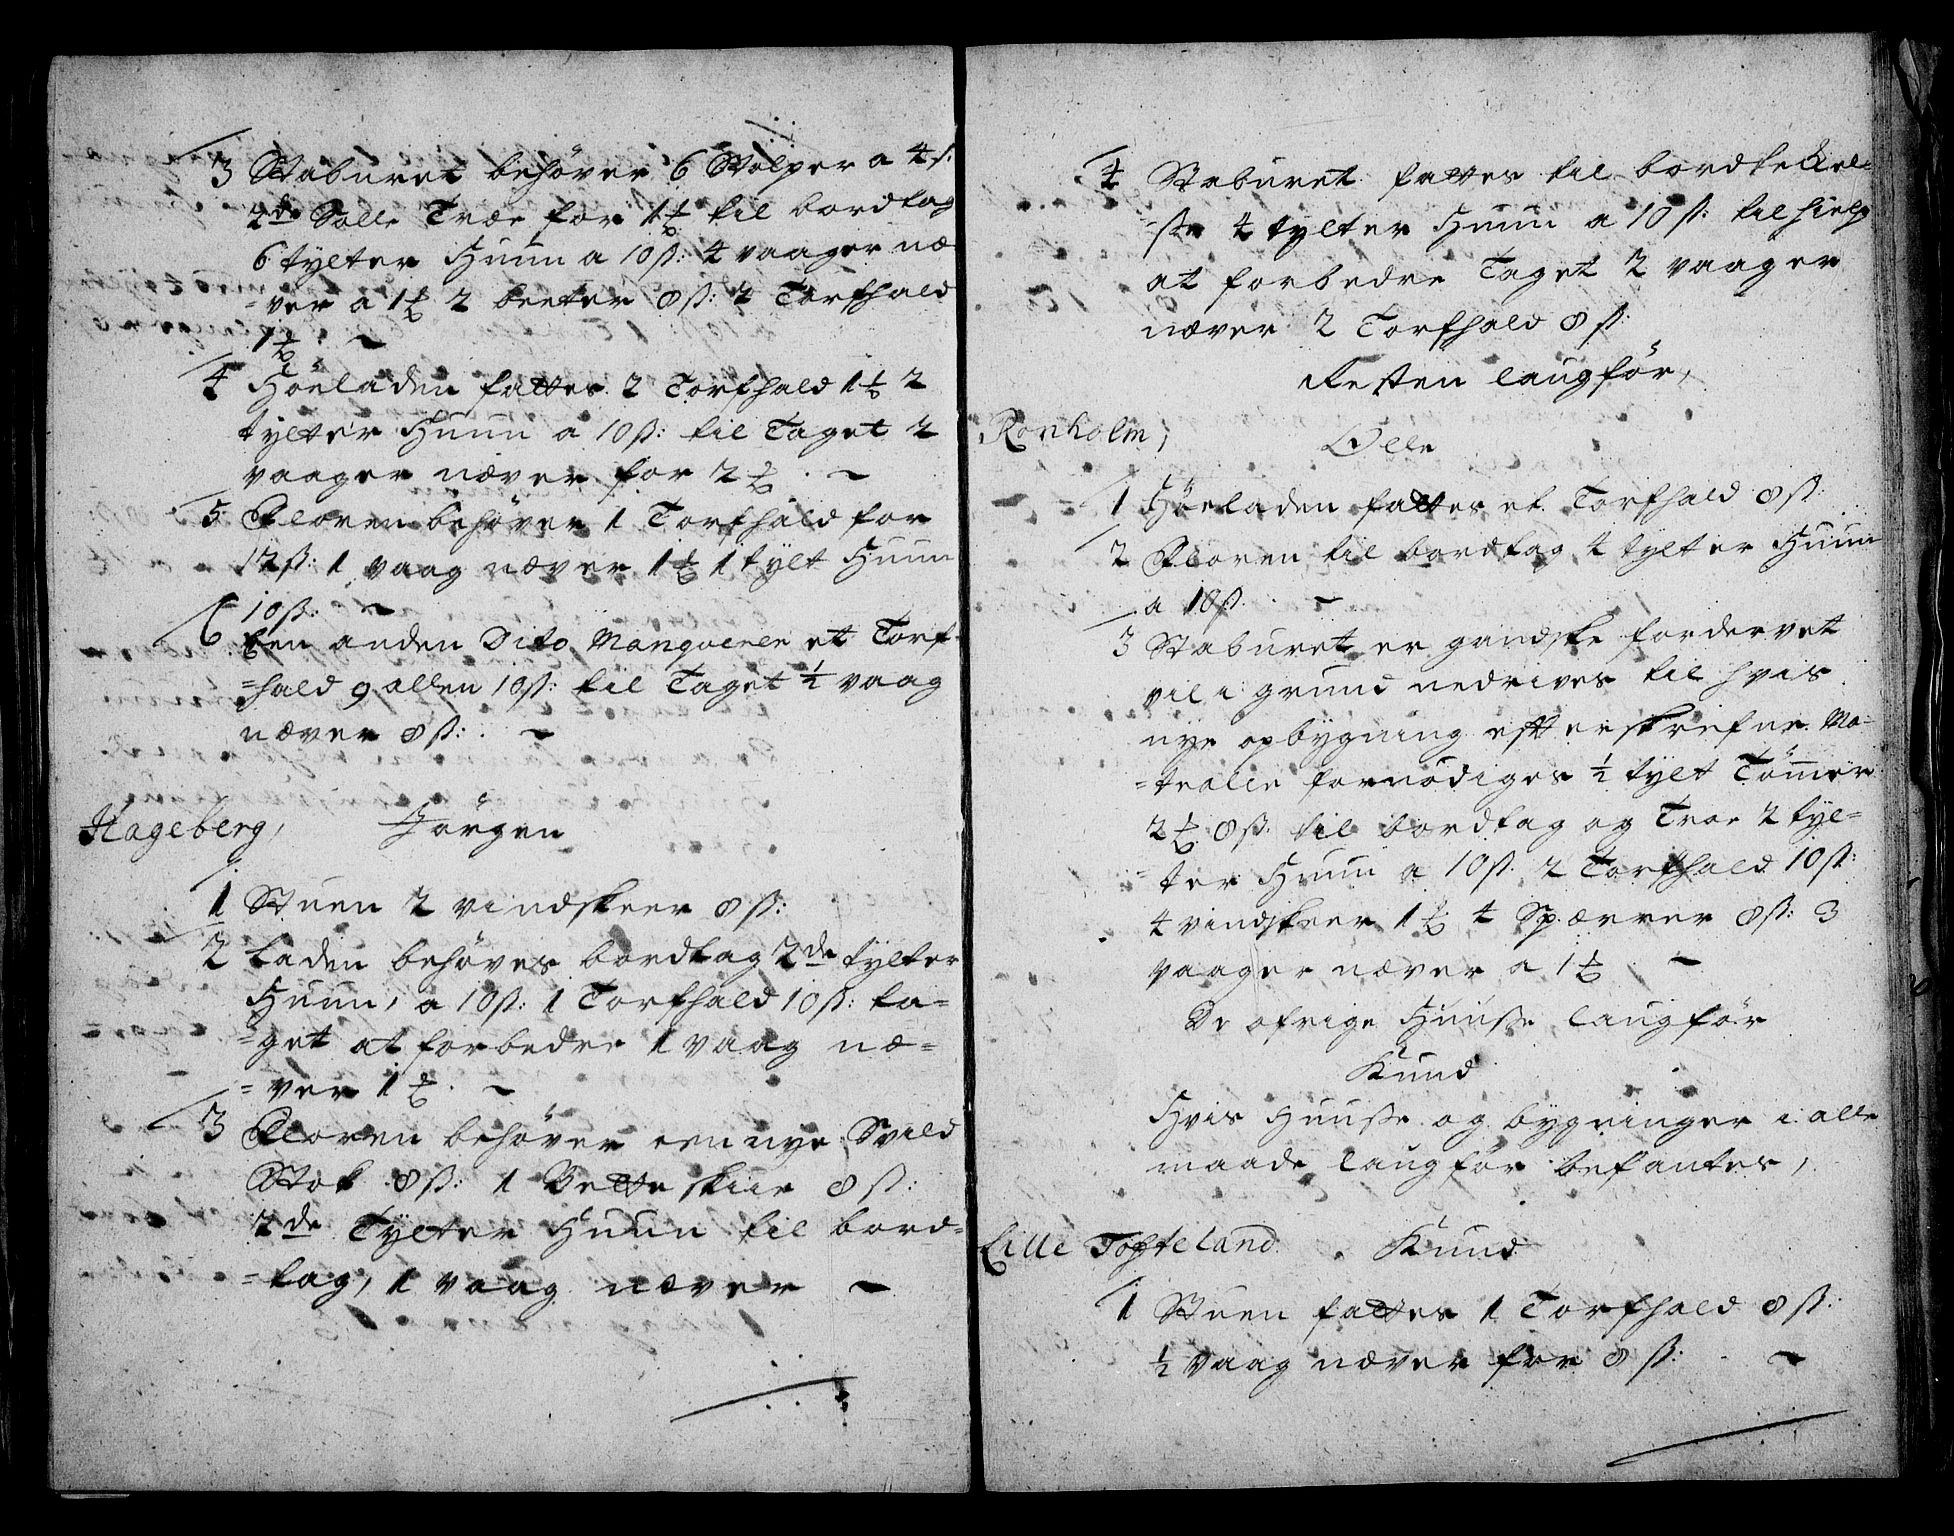 3 Staburet behøver 6 Stolper a 4 s:
2de Solle Træe for 1 ½ til bordtag
6 tylter Huun a 10 ß: 4 vaager næ=
=ver a 1 ½ 2 beeter 8 ß: 2 Torfhald
1 ½ . ~
4 Höeladen fattes 2 Torfhald 1 ½ 2
tylter Huun a 10 ß: til Taget 2
vaager næver for 2 ½ . ~
5 Floren behøver 1 Torfhald for
12 ß: 1 vaag næver 1 ½ 1 tylt Huun
10 ß: ~
6 Een anden Dito Manqverer et Torf=
=hald 9 allen 10 ß: til Taget ½ vaag
næver 8 ß: . ~
Hageberg, Jörgen
1 Stuen 2 vindskeer 8 ß:
2 Laden behøves bordtag 2de tylter
Huun, a 10 ß: 1 Torfhald 10 ß: ta=
=get at forbedre 1 vaag næ=
=ver 1 . ~
3 Floren behøver een nye Svild
Stok 8 ß: 1 Bette skiie 8 ß:
2de Tÿlter Huun til bord=
=tag, 1 vaag næver ~
4 Staburet fattes til bordtekkel=
=sse 4 tylter Huun a 10 ß: til hielp
at forbedre Taget 2 vaager
næver 2 Torfhald 8 ß:
Resten laugför,
Ronholm, Olle
1 Höeladen fattes et Torfhald 8 ß:
2 Floren til bordtag 4 tylter Huun
a 10 ß. . ~
3 Staburet er gandske fordervet
vil i grund nedrives til hvis
nye opbygning efterskrefne Ma=
=tealle fornödiges ½ tylt Tömer
2 ½ 8 ß. til bordtag og Troe 2 tyl=
=ter Huun a 10 ß. 2 Torfhald 10 ß:
4 vindskeer 1 ½ 4 Spærrer 8 ß: 3
vaager næver a 1 ½ . ~
De öfrige Huuße laugför
Knud
Hvis Huuße og bygninger i alle
maade laugför befantes,
Lille Tofteland. Knud
1 Stuen fattes 1 Torfhald 8 ß:
½ vaag næver for 8 ß: . ~